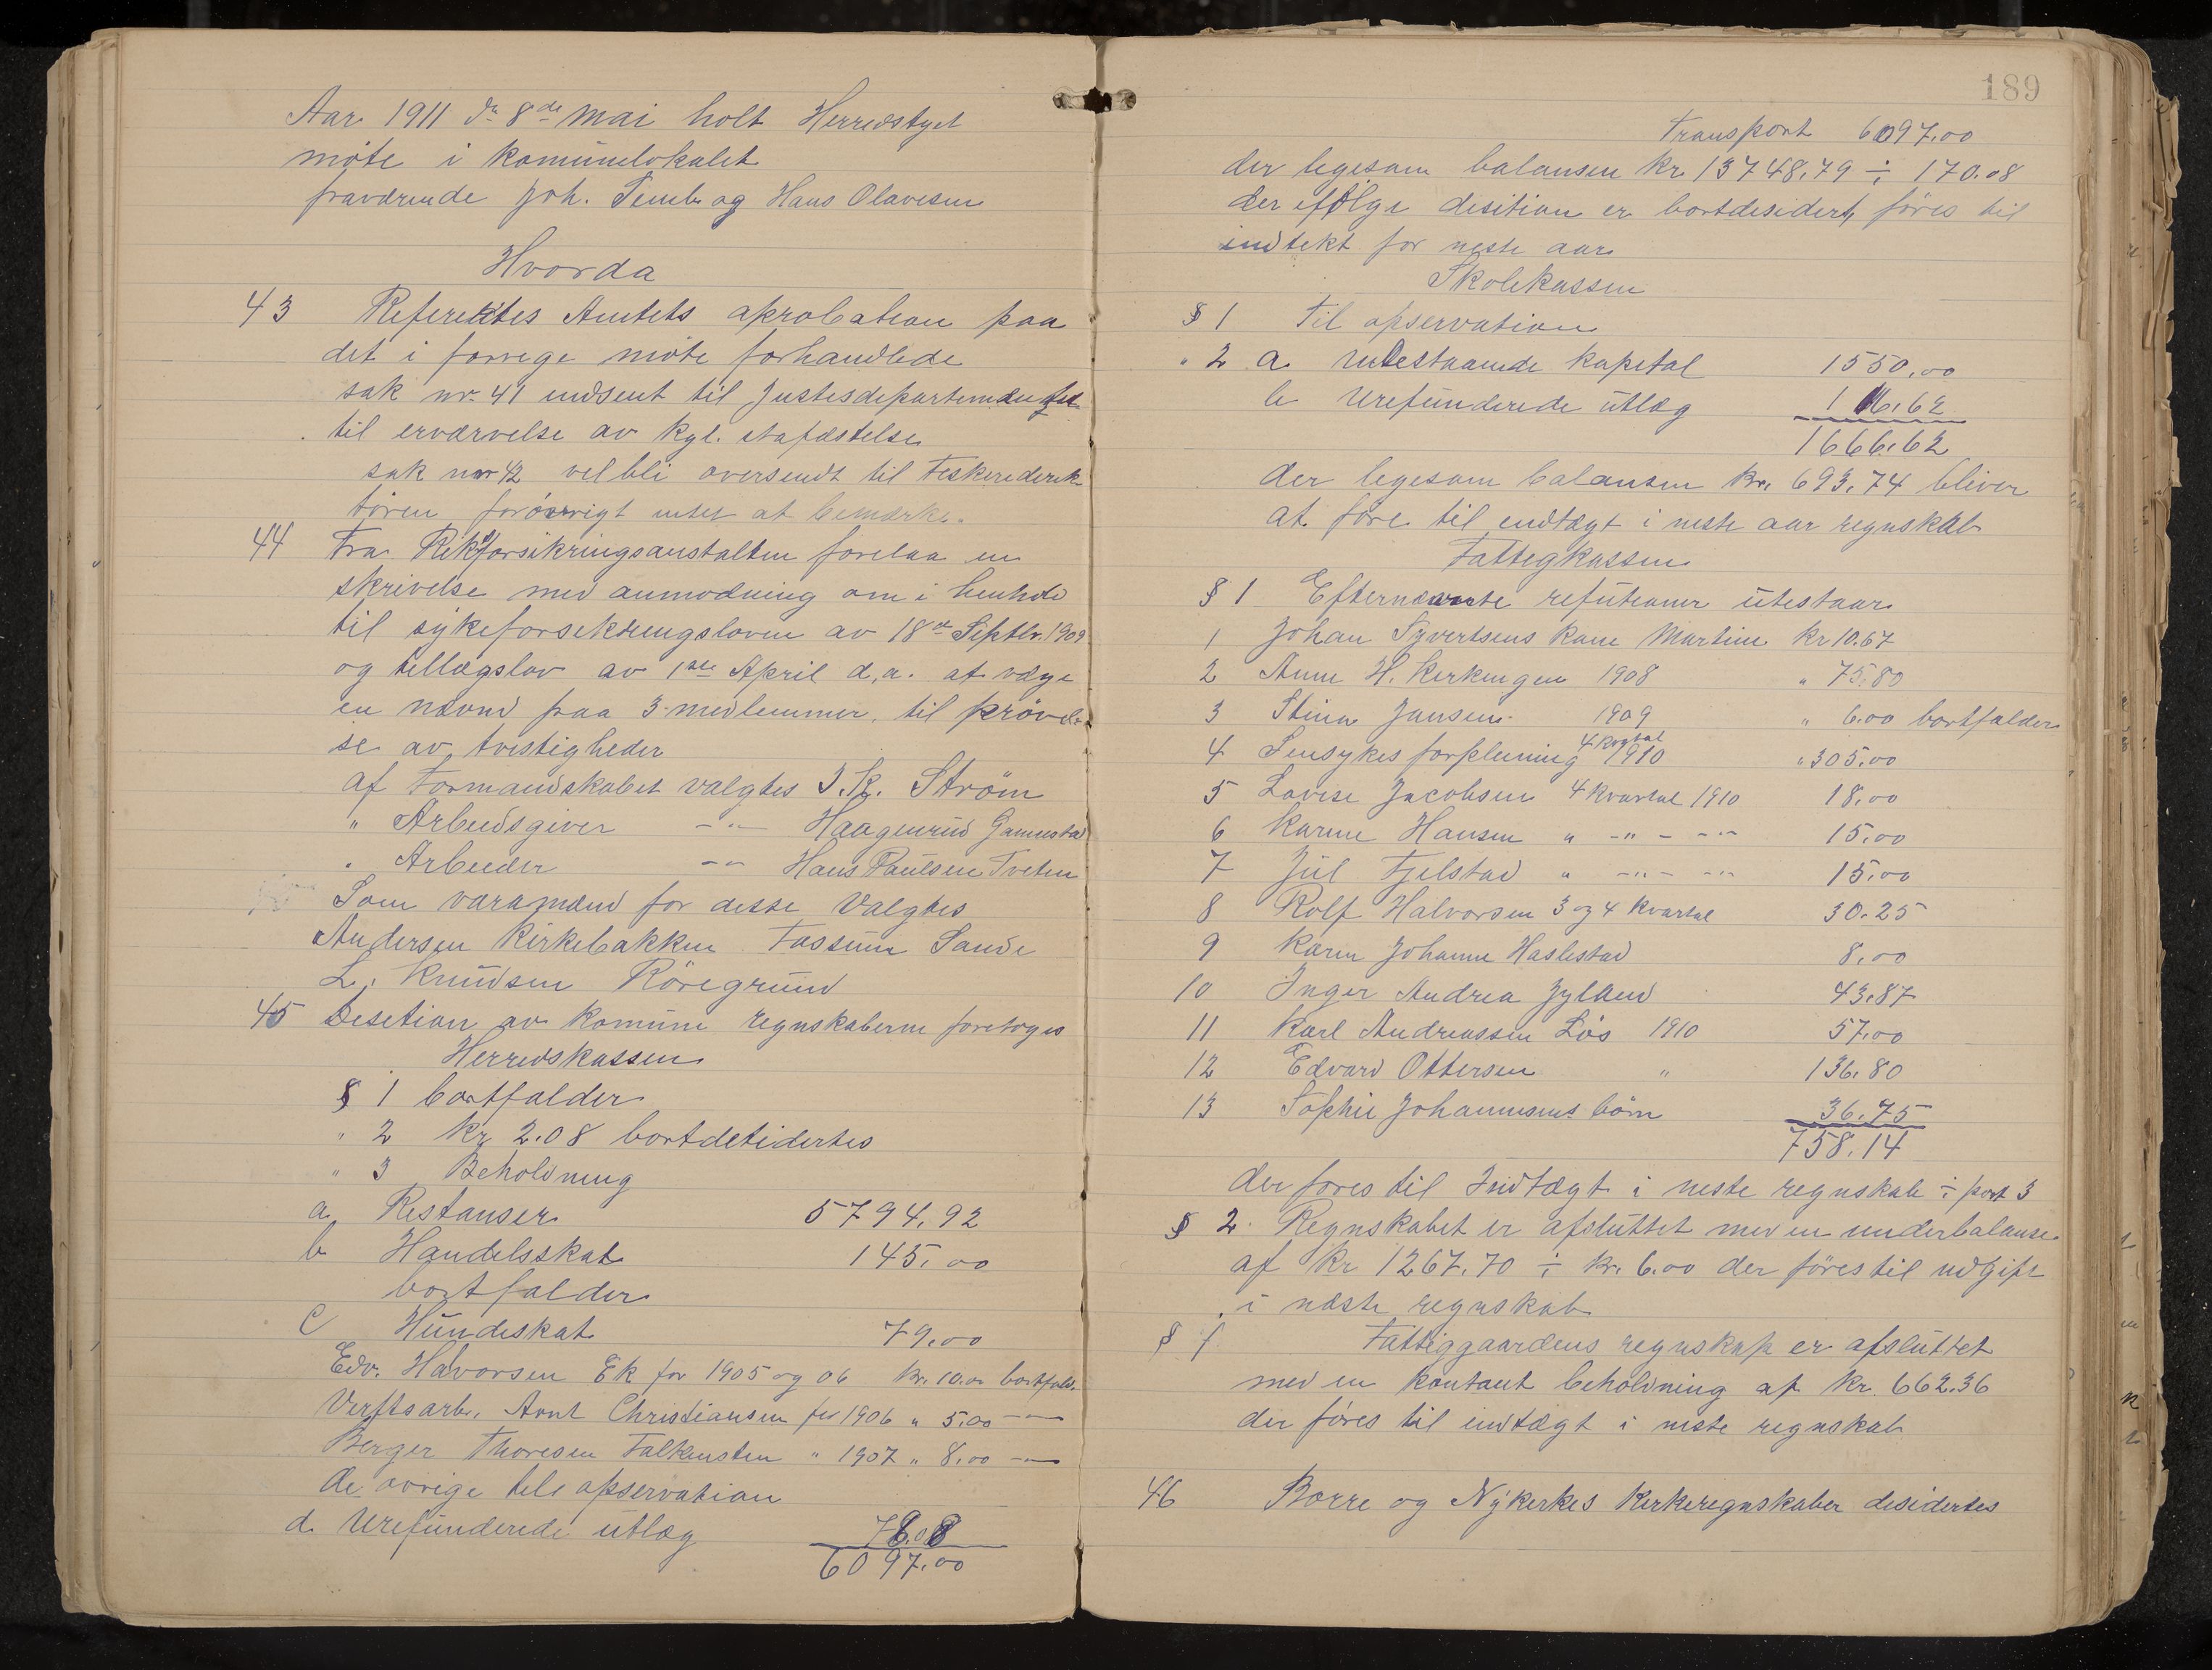 Aar 1911 dn 8de Mai holt Herredstyet
møte i komunelokalet
fraværende Joh. Semb og Hans Olavesen
Hvorda
43 Referertes Amtets aprobation paa
det i forrege møte forhandlede
sak nr. 41 indsent til Justesdepartemanget
til erværvelse av kgl. stafæstelse
sak nr 42 vel bli oversendt til Feskeriderek
tøren forøvrigt intet at bemærke.
44 Fra Riksforsikringsanstalten forelaa en
skrivelse med anmodning om i henhold
til sykeforsekrengsloven av 18de Septbr. 1909
og tellægslov av 1ste April d.a. at vælge
en nævnd paa 3 medlemmer, til prøvel-
se av tvestigheder
af Formandskabet valgtes J. K. Strøm
" Arbeidsgiver -"- Haagenrud Gannestad
" Arbeider -"- Hans Paulsen Tveten
Som varamænd for desse valgtes
Andersen Kirkebakken Fossum Sande
L. Knudsen Røregrund
45 Desetion av komune regnskaberne foretoges
Herredskassen
§ 1 bortfalder
" 2 kr 2.08 bortdetidertes
" 3 Beholdning
a. Restanser 5794.92
b Handelsskat 145.00
bortfalder
c Hundeskat 79.00
Edv. Havorsen Ek for 1905 og 06 kr. 10.00 bortfald.
Verftsarb. Arnt Christiansen for 1906 " 5.00 -"-
Berger Thoresen Falkensten " 1907 " 8.00 -"-
de øvrige tels opservation
d. Urefunderede utlæg 78.08
6097.00
189
Transport 6097.00
der legesom balansen kr. 13748.79 ÷ 170.08
der efølge desition er bortdesidert, føres til
indtekt for neste aar
Skolekassen
§ 1 Til opservation
" 2 a. Utestaaende kapetal 1550.00
b Urefunderede utlæg 116.62
1666.62
der legesom balansen kr. 693.74 bliver
at føre til endtægt i neste aar regnskab
Fattegkassen
§ 1 Efternævnte refutioner utestaar
1 Johan Syvertsens kone Martine kr 10.67
2 Anne H. Kerkengen 1908 " 75.80
3 Stina Jansen 1909 " 6.00 bortfalder
4 Sensykes forpleining 4 kvartal 1910 " 305.00
5 Lovise Jacobsen 4 kvartal 1910 18.00
6 Karen Hansen " -"- -"- 15.00
7 Jul Fjelstad " -"- -"- 15.00
8 Rolf Halvorsen 3 og 4 kvartal 30.25
9 Karen Johanne Haslestad 8.00
10 Inger Andrea Jyland 43.87
11 Karl Andreassen Løs 1910 57.00
12 Edvard Ottersen " 136.80
13 Sophie Johannesens børn 36.75
758.14
der føres til Indtægt i neste regnskab ÷ post 3
§ 2. Regnskabet er afsluttet med en underbalanse
af kr 1267.70 ÷ kr. 6.00 der føres til udgift
i næste regnskab
§ f Fattiggaardens regnskap er afsluttet
med en kontant beholdning af kr. 662.36
der føres til endtægt i neste regnskab
46 Borre og Nykerkes Kerkeregnskaber desidertes